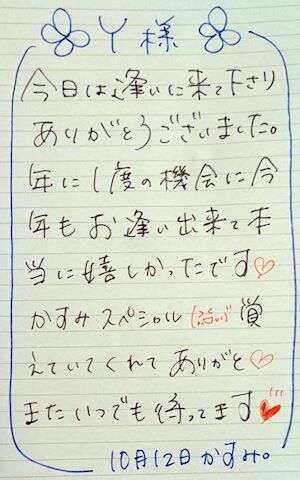 Y様
今日は逢いに来て下さり
ありがとうございました。
年に1度の機会に今
年もお逢い出来て本
当に嬉しかったです♡
かすみスペシャル
えていてくれてありがと♡
またいつでも待ってます♥
10月12日かすみ。